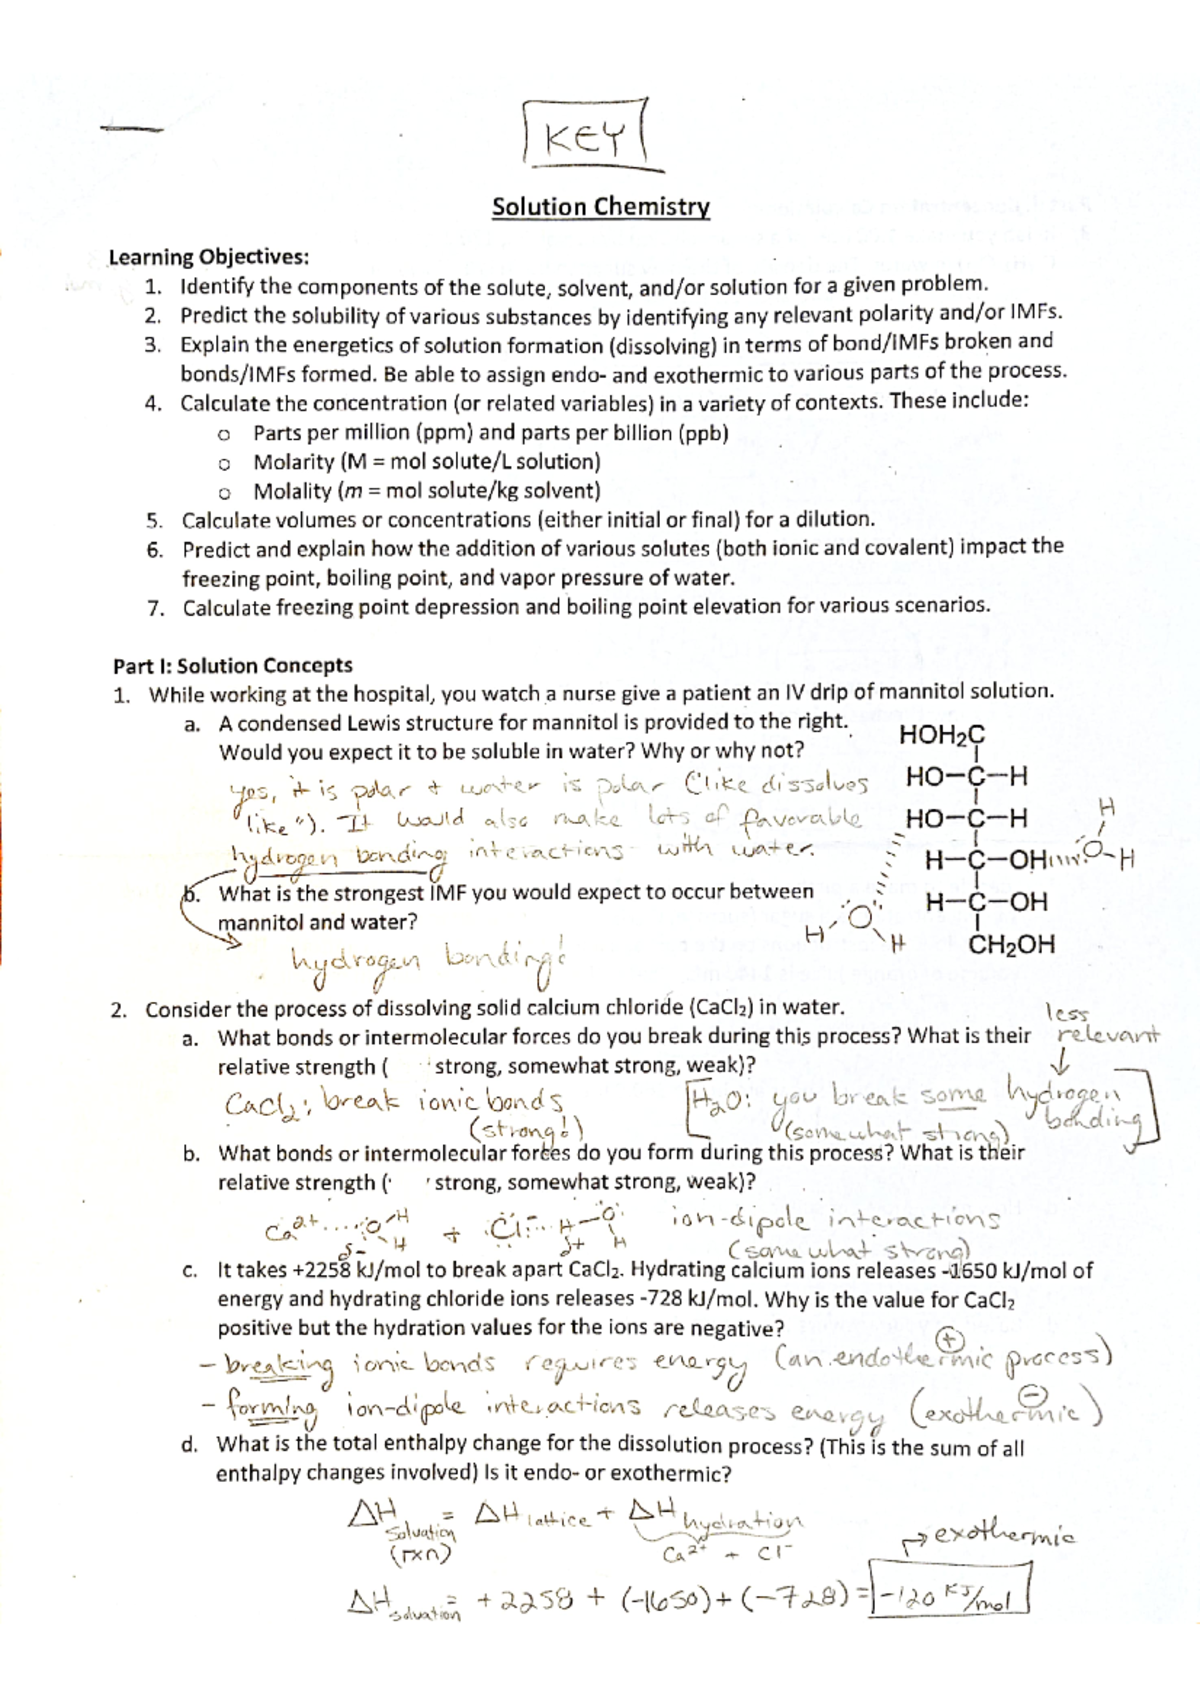 KEY
Solution Chemistry
Learning Objectives:
1. Identify the components of the solute, solvent, and/or solution for a given problem.
2. Predict the solubility of various substances by identifying any relevant polarity and/or IMFs.
3. Explain the energetics of solution formation (dissolving) in terms of bond/IMFs broken and
bonds/IMFs formed. Be able to assign endo- and exothermic to various parts of the process.
4. Calculate the concentration (or related variables) in a variety of contexts. These include:
o Parts per million (ppm) and parts per billion (ppb)
o Molarity (M = mol solute/L solution)
o Molality (m = mol solute/kg solvent)
5. Calculate volumes or concentrations (either initial or final) for a dilution.
6. Predict and explain how the addition of various solutes (both ionic and covalent) impact the
freezing point, boiling point, and vapor pressure of water.
7. Calculate freezing point depression and boiling point elevation for various scenarios.
Part I: Solution Concepts
1. While working at the hospital, you watch a nurse give a patient an IV drip of mannitol solution.
a. A condensed Lewis structure for mannitol is provided to the right.
Would you expect it to be soluble in water? Why or why not?
yes, it is polar + water is polar ("like dissolves
like"). It would also make lots of favorable
hydrogen bonding interactions with water.
HOH₂C
HO-C-H
HO-C-H
H-C-OH
H-C-OH
CH₂OH
H
O-H
O
H
H
b. What is the strongest IMF you would expect to occur between
mannitol and water?
hydrogen bonding!
2. Consider the process of dissolving solid calcium chloride (CaCl₂) in water.
a. What bonds or intermolecular forces do you break during this process? What is their
relative strength ( strong, somewhat strong, weak)?
less
relevant
CaCl₂: break ionic bonds
(strong!)
[H₂O: you break some hydrogen
bonding]
(somewhat strong)
b. What bonds or intermolecular forces do you form during this process? What is their
relative strength ( strong, somewhat strong, weak)?
Ca²⁺ .... :O-H H δ- + :Cl:⁻ ... H-O: H δ+ ion-dipole interactions
(somewhat strong)
c. It takes +2258 kJ/mol to break apart CaCl₂. Hydrating calcium ions releases -1650 kJ/mol of
energy and hydrating chloride ions releases -728 kJ/mol. Why is the value for CaCl₂
positive but the hydration values for the ions are negative?
- breaking ionic bonds requires energy (an endothermic process) ⊕
- forming ion-dipole interactions releases energy (exothermic) ⊖
d. What is the total enthalpy change for the dissolution process? (This is the sum of all
enthalpy changes involved) Is it endo- or exothermic?
ΔH solvation (rxn) = ΔH lattice + ΔH hydration
Ca²⁺ + Cl⁻
→ exothermic
ΔH solvation = +2258 + (-1650) + (-728) = -120 kJ/mol